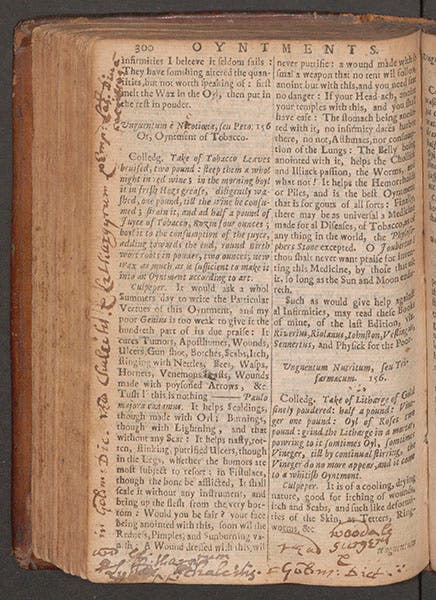 300 OYNTMENTS.
infirmities I beleeve it seldom fails :
They have somthing altered the quan-
tities, but not worth speaking of : first
melt the Wax in the Oyl, then put in
the rest in pouder.
Unguentum è Nicotiana, seu Peto. 156
Or, Oyntment of Tobacco.
Colledg. Take of Tobacco Leaves
bruised, two pound : steep them a whol
night in red wine; in the morning boyl
it in fresh Hogs grease, diligently wa-
shed, one pound, till the wine be consu-
med ; strain it, and ad half a pound of
Juyce of Tobacco, Rozin four ounces ;
boyl it to the consumption of the juyce,
adding towards the end, round Birth-
wort roots in pouder, two ounces, new
wax as much as is sufficient to make it
into an Oyntment according to art.
Culpeper. It would ask a whol
Summers day to write the Particular
Vertues of this Oyntment, and my
poor Genius is too weak to give it the
hundreth part of its due praise : It
cures Tumors, Aposthumes, Wounds,
Ulcers, Gun shot, Botches, Scabs, Itch,
stinging with Nettles, Bees, Wasps,
Hornets, Venemous Beasts, Wounds
made with poysoned Arrows, &c.
Tush ! this is nothing — Paulo
majora canamus. It helps Scaldings,
though made with Oyl; Burnings,
though with Lightning, and that
without any Scar : It helps nasty, rot-
ten, stinking, putrified Ulcers, though
in the Legs, whether the humors are
most subject to resort : in Fistulaes,
though the bone be afflicted, It shall
scale it without any instrument, and
bring up the flesh from the very bot-
tom : Would you be fair ? your face
being anointed with this, soon will the
Redness, Pimples, and Sunburning va-
nish. A Wound dressed with this, wil
never putrifie : a wound made with so
smal a weapon that no tent will follow,
anoint but with this, and you need fear
no danger : If your Head ach, anoint
your temples with this, and you shall
have ease : The stomach being anoint-
ed with it, no infirmity dares harbor
there, no not Asthmaes, nor consump-
tion of the Lungs : The Belly being
anointed with it, helps the Chollick
and Illiack passion, the Worms, and
what not ! It helps the Hemorrhoids
or Piles, and is the best Oyntment
that is for gouts of all sorts : Finally,
there may be as universal a Medicine
made for al Diseases, of Tobacco, as of
any thing in the world, the Philoso-
phers Stone excepted. O Joubertus !
thou shalt never want praise for invent-
ing this Medicine, by those that use
it, so long as the Sun and Moon endu-
reth.
Such as would give help against
al Infirmities, may read these Books
of mine, of the last Edition, viz.
Riverius, Riolanus, Johnston, Veslingus,
Sennertus, and Physick for the Poor.
Unguentum Nutritum, seu Tri-
farmacum. 156.
Colledg. Take of Litharge of Gold
finely poudered: half a pound : Vine-
ger one pound : Oyl of Roses two
pound : grind the Litharge in a mortar,
powring to it somtimes Oyl, somtimes
Vineger, till by continual stirring, the
Vineger do no more appear, and it come
to a whitish Oyntment.
Culpeper. It is of a cooling, drying
nature, good for itching of wounds,
itch and Scabs, and such like deformi-
ties of the Skin, as Tetters, Ring-
worms, &c.